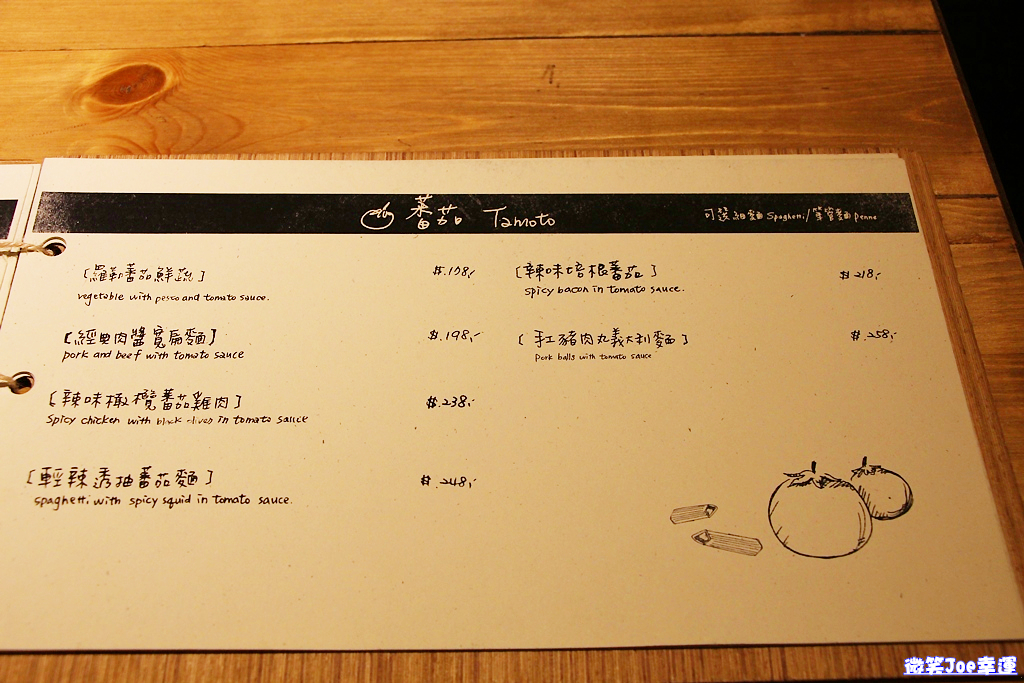 蕃茄 Tamoto
可選細麵 Spaghetti/筆管麵 penne
[羅勒蕃茄鮮蔬] $.158.-
vegetable with pesto and tomato sauce.
[經典肉醬寬扁麵] $.198.-
pork and beef with tomato sauce
[辣味橄欖蕃茄雞肉] $.238.-
Spicy chicken with black olives in tomato sauce
[輕辣透抽蕃茄麵] $.248.-
spaghetti with spicy squid in tomato sauce.
[辣味培根蕃茄] $218.-
spicy bacon in tomato sauce.
[手工豬肉丸義大利麵] $.258.-
Pork balls with tomato sauce
微笑Joe幸運